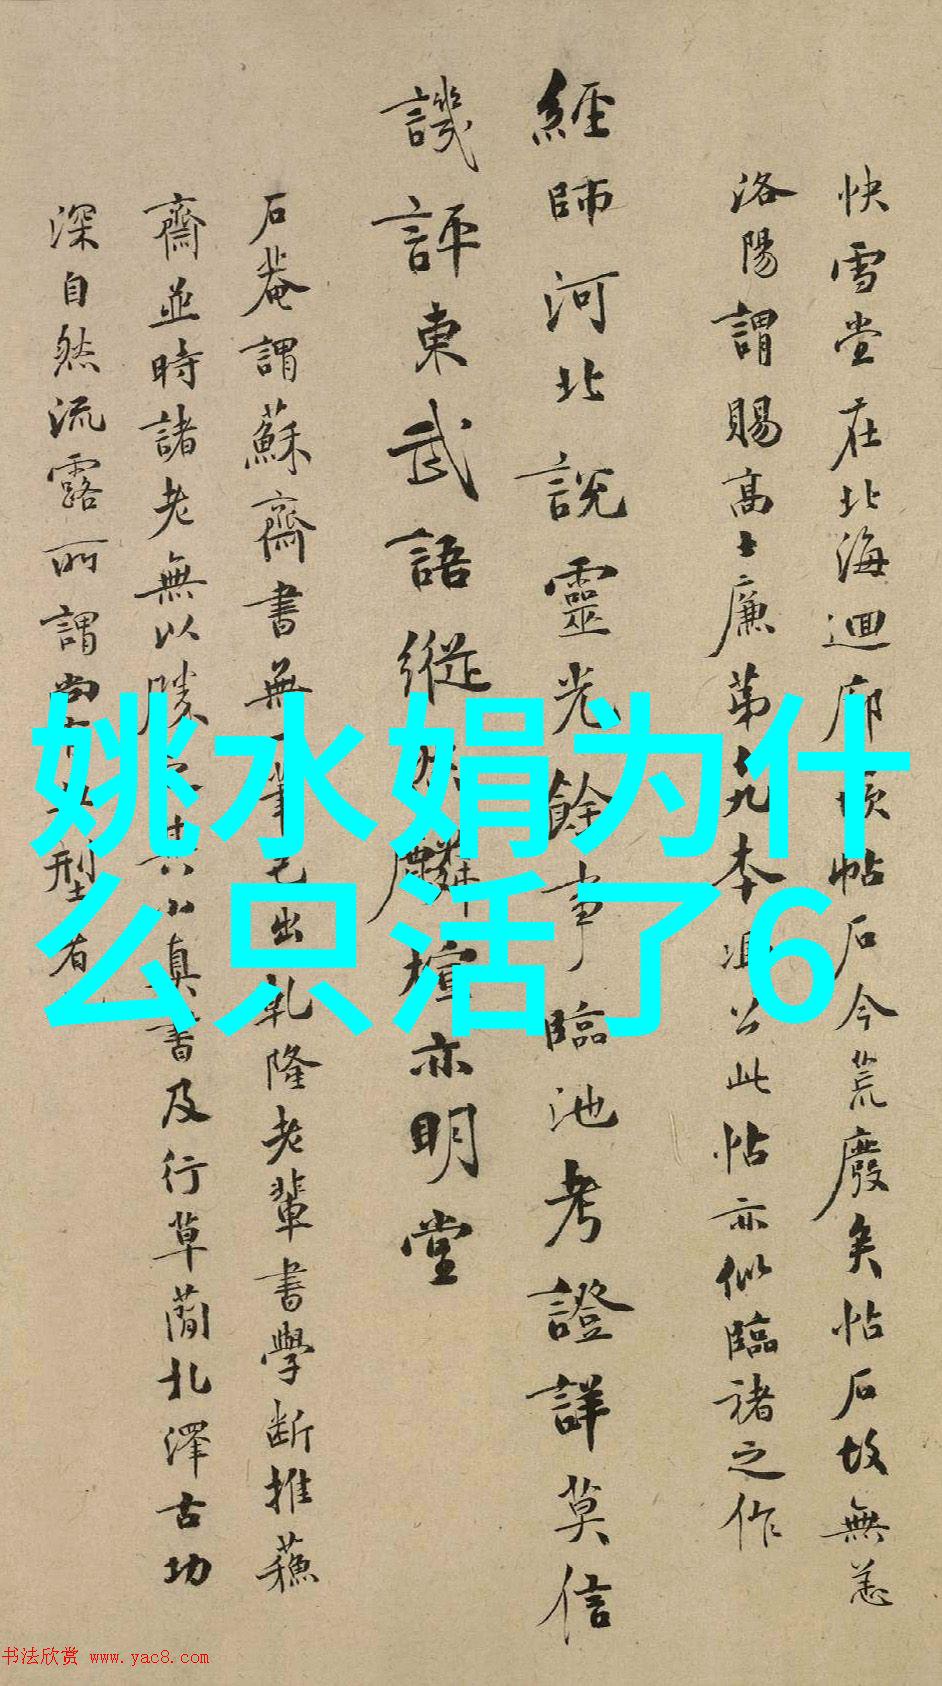 快雪堂在北海迴廊壞帖石今荒廢矣帖石故無恙
洛陽謂賜高士廉第九本冯公此帖亦似臨褚之作
經師河北說靈光餘事臨池考證詳莫信
譏評東武語縱麻壇亦明堂
石菴謂蘇齋書無一筆己出乳隆老輩書學斷推蘇
齋並時諸老無以勝其小真書及行草蘭北澤古功
深自然流露所謂尚有典型有
姚水娟为什
么只活了6
书法欣赏 www.yac8.com